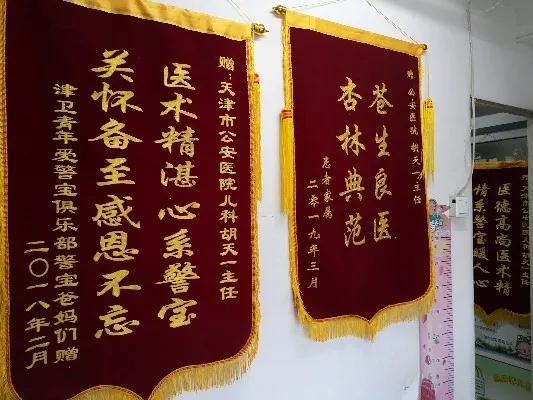 赠:天津市公安医院儿科胡天一主任
医术精湛心系警宝
关怀备至感恩不忘
津卫青年爱警宝俱乐部警宝爸妈们赠
二〇一八年二月
赠 公安医院 胡天一主任
苍生良医
杏林典范
患者家属
二零一九年三月
天津市公安医院儿科胡天一主任
医德高尚医术精
情系警宝暖人心